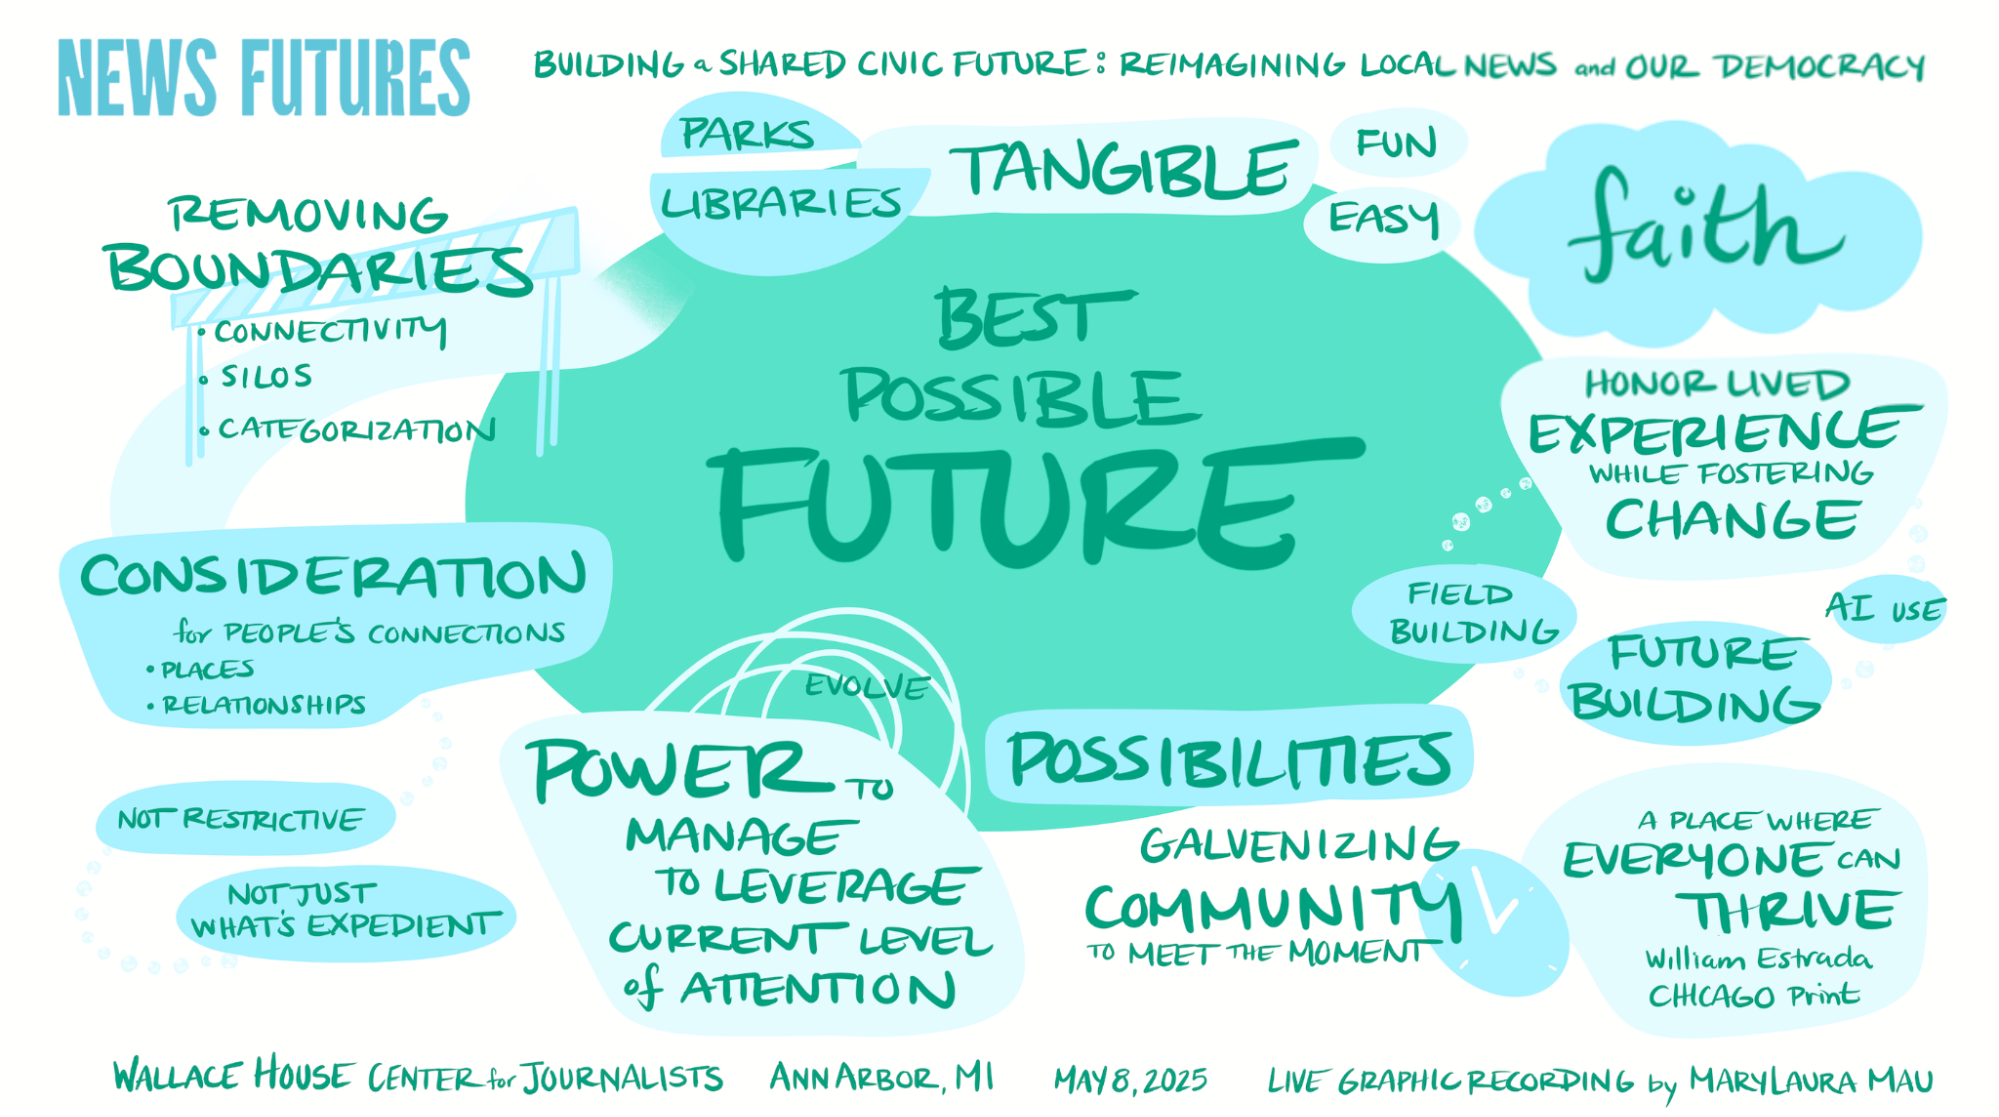 NEWS FUTURES
BUILDING a SHARED CIVIC FUTURE: REIMAGINING LOCAL NEWS and OUR DEMOCRACY
PARKS
LIBRARIES
TANGIBLE
FUN
EASY
faith
REMOVING
BOUNDARIES
• CONNECTIVITY
• SILOS
• CATEGORIZATION
BEST
POSSIBLE
FUTURE
HONOR LIVED
EXPERIENCE
WHILE FOSTERING
CHANGE
CONSIDERATION
for PEOPLE'S CONNECTIONS
• PLACES
• RELATIONSHIPS
FIELD
BUILDING
AI USE
FUTURE
BUILDING
EVOLVE
NOT RESTRICTIVE
NOT JUST
WHAT'S EXPEDIENT
POWER TO
MANAGE
TO LEVERAGE
CURRENT LEVEL
of ATTENTION
POSSIBILITIES
GALVENIZING
COMMUNITY
TO MEET THE MOMENT
A PLACE WHERE
EVERYONE CAN
THRIVE
William Estrada
CHICAGO Print
WALLACE HOUSE CENTER for JOURNALISTS ANN ARBOR, MI MAY 8, 2025 LIVE GRAPHIC RECORDING by MARYLAURA MAU